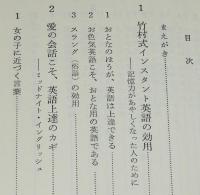 目次
まえがき
1 竹村式インスタント英語の効用
――記憶力があやしくなった人のために
1 おとなのほうが、英語は上達できる
2 お色気英語こそ、おとな用の英語である
3 スラング(俗語)の効用
2 愛の会話こそ、英語上達のカギ
――ミッドナイト・イングリッシュ
1 女の子に近づく言葉